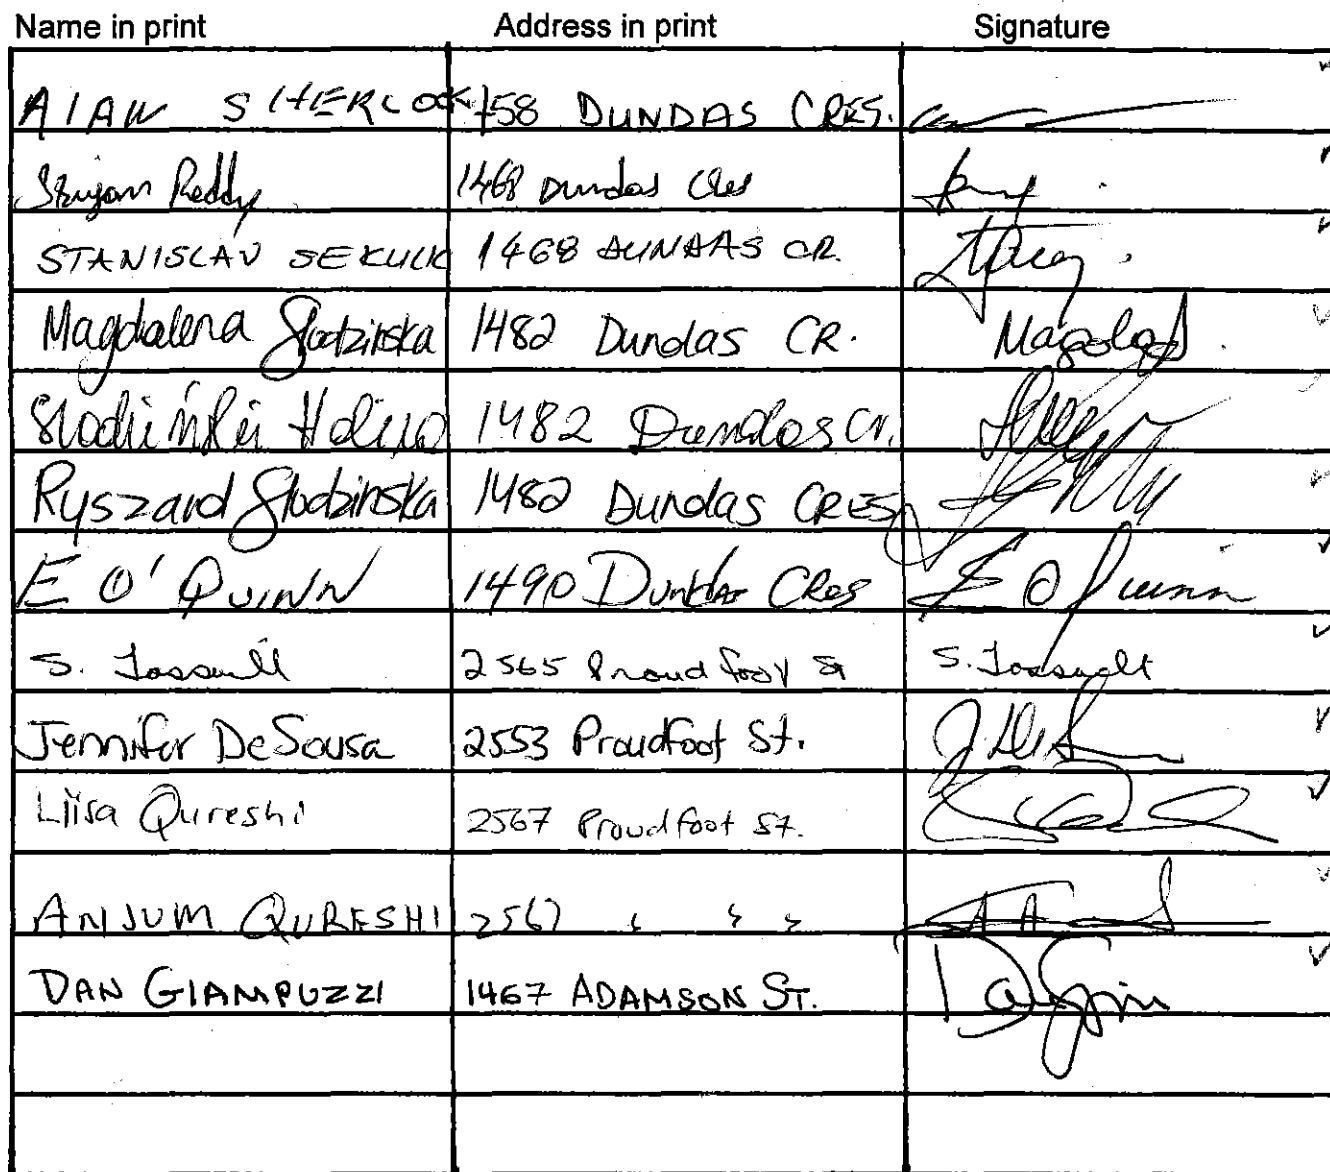 Name in print Address in print Signature
ALAN SHERLOCK 1458 DUNDAS CRES.
Srujan Reddy 1468 Dundas Cres
STANISLAV SEKULIC 1468 DUNDAS CR.
Magdalena Slodzinska 1482 Dundas CR.
1482 Dundas Cr.
Ryszard Slodzinska 1482 Dundas CRES
E O'QUINN 1490 Dundas Cres E O'Quinn
S. 2565 Proudfoot St S.
Jennifer DeSousa 2553 Proudfoot St.
Liisa Qureshi 2567 Proudfoot St.
ANJUM QURESHI 2567 " " "
DAN GIAMPUZZI 1467 ADAMSON ST.